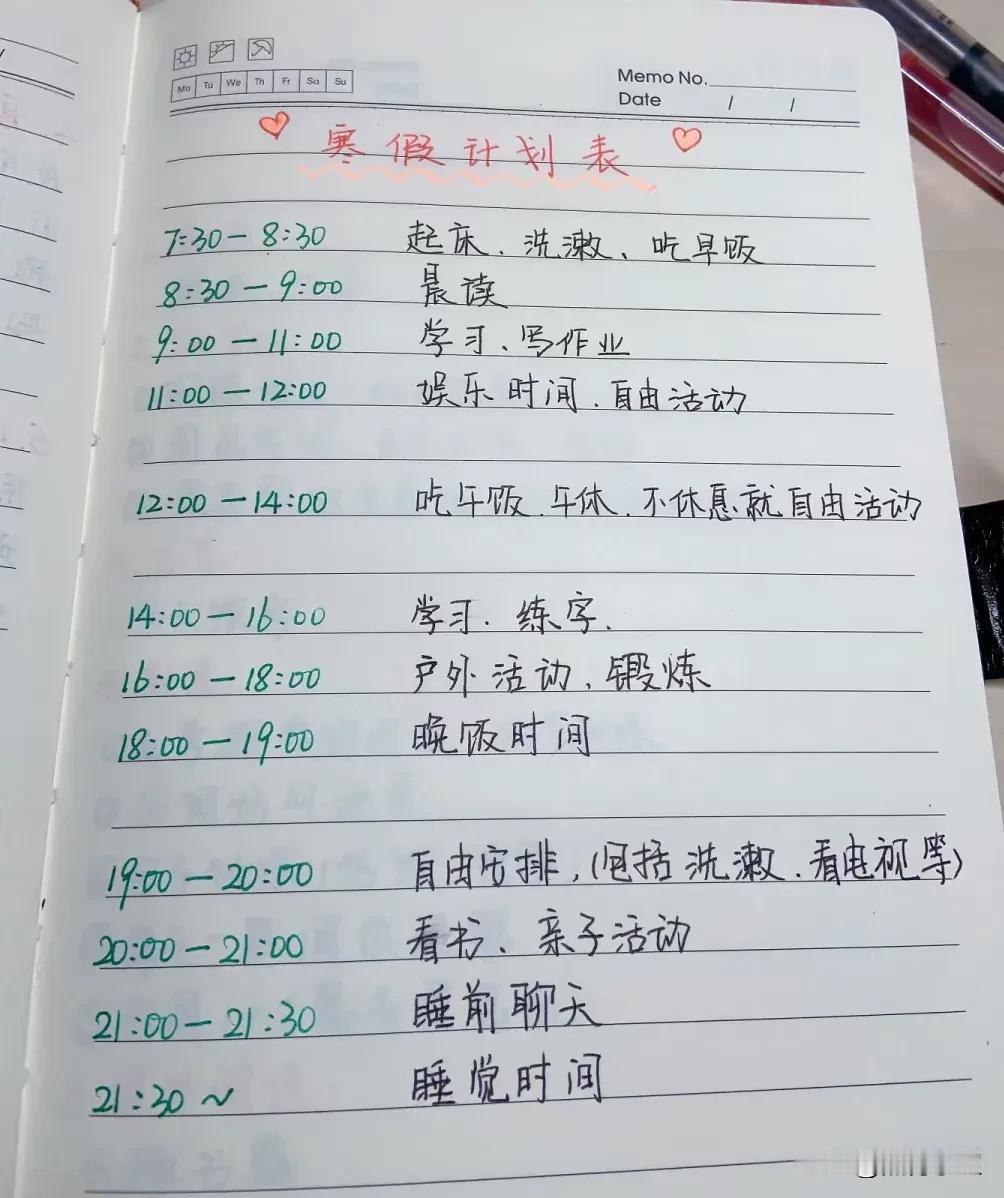 Mo Tu We Th Fr Sa Su
Memo No.
Date / /
寒假计划表
7:30—8:30 起床、洗漱、吃早饭
8:30—9:00 晨读
9:00—11:00 学习、写作业
11:00—12:00 娱乐时间、自由活动
12:00—14:00 吃午饭、午休、不休息就自由活动
14:00—16:00 学习、练字.
16:00—18:00 户外活动、锻炼
18:00—19:00 晚饭时间
19:00—20:00 自由安排,(包括洗漱、看电视等)
20:00—21:00 看书、亲子活动
21:00—21:30 睡前聊天
21:30~ 睡觉时间